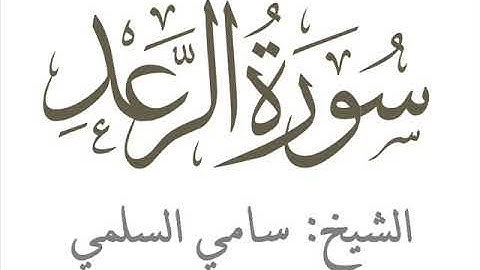 سُورَةُ الرَّعْدِ
الشيخ: سامي السلمي